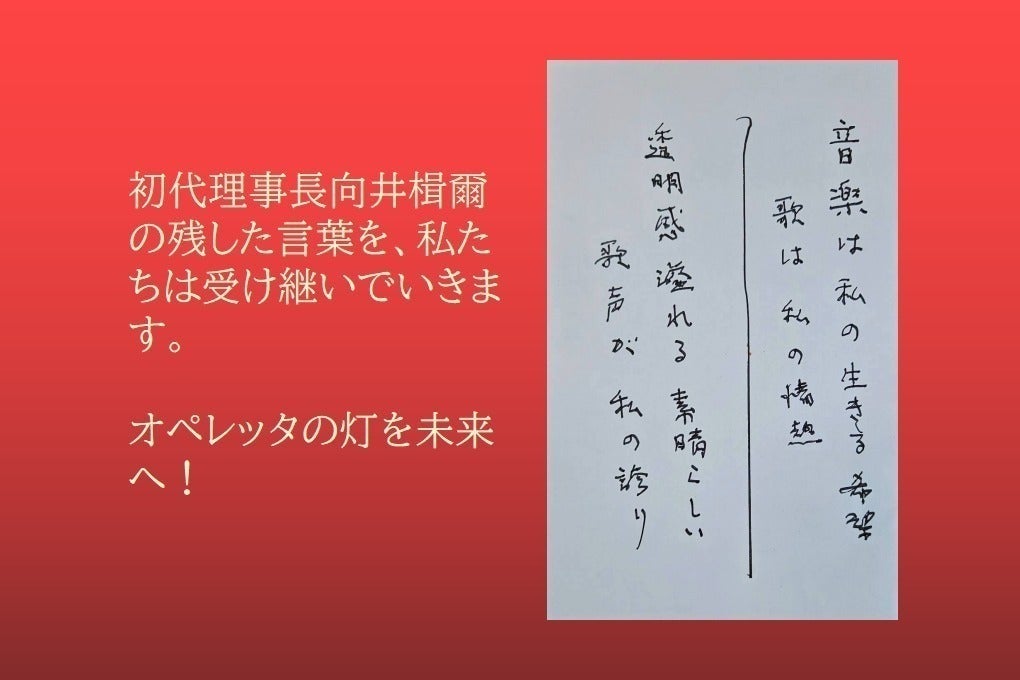 初代理事長向井楫爾
の残した言葉を、私た
ちは受け継いでいきま
す。
オペレッタの灯を未来
へ！
音楽は私の生きる希望
歌は私の情熱
透明感溢れる素晴らしい
歌声が私の誇り